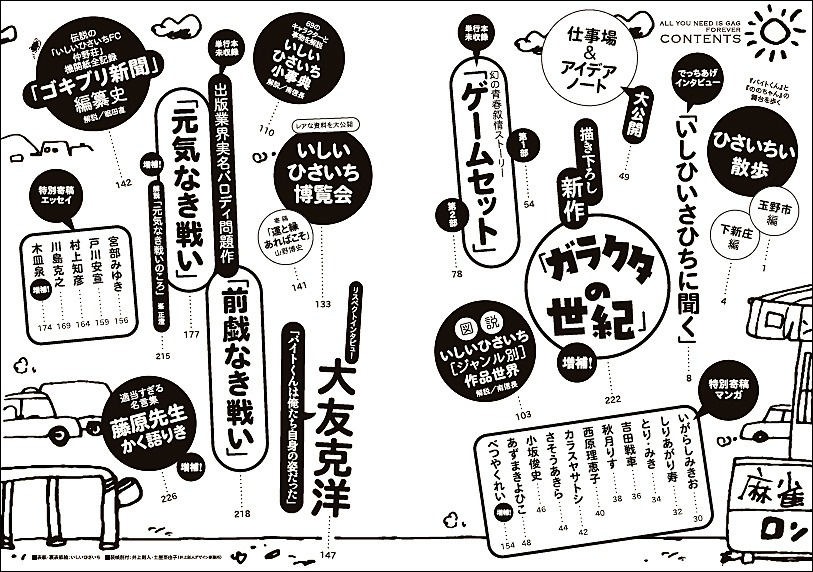 ALL YOU NEED IS GAG
FOREVER
CONTENTS
『バイトくん』と
『ののちゃん』の
舞台を歩く
ひさいちい
散歩
玉野市
編
1
下新庄
編
4
でっちあげ
インタビュー
「いしひいさひちに聞く」
8
仕事場
&
アイデア
ノート
大公開
49
描き下ろし
新作
「ガラクタ
の
世紀」
増補!
222
単行本
未収録
幻の青春叙情ストーリー
「ゲームセット」
第1部
54
第2部
78
図説
いしいひさいち
[ジャンル別]
作品世界
解説/南信長
103
特別寄稿
マンガ
いがらしみきお
30
しりあがり寿
32
とり・みき
34
吉田戦車
36
秋月りす
38
西原理恵子
40
カラスヤサトシ
42
さそうあきら
44
小坂俊史
46
あずまきよひこ
48
べつやくれい
増補!
154
69の
キャラクターと
事物を解説
いしい
ひさいち
小事典
解説/南信長
110
レアな資料を大公開
いしい
ひさいち
博覧会
133
寄稿
「運と縁
あればこそ」
山野博史
141
リスペクトインタビュー
大友克洋
「バイトくんは俺たち自身の姿だった」
147
単行本
未収録
出版業界実名パロディ問題作
「元気なき戦い」
177
「前戯なき戦い」
218
増補!
解説「元気なき戦いのころ」
峯正澄
215
伝説の
「いしいひさいちFC
仲野荘」
機関紙全記録
「ゴキブリ新聞」
編纂史
142
特別寄稿
エッセイ
宮部みゆき
156
戸川安宣
159
村上知彦
164
川島克之
169
木皿泉
増補!
174
適当すぎる
名言集
藤原先生
かく語りき
増補!
226
麻雀
ロン